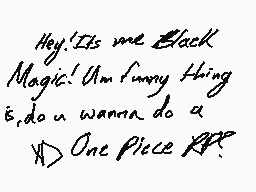 Hey! Its me Black
Magic! Um funny thing
is, do u wanna do a
XD One Piece RP?